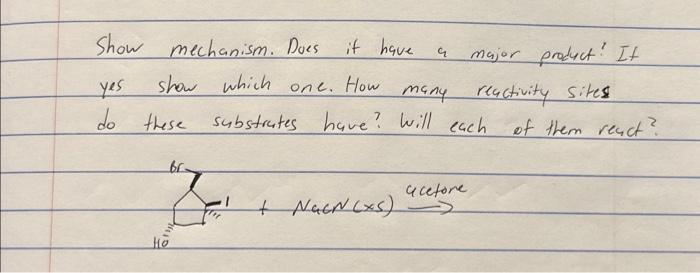 Show mechanism. Does it have a major product? If
yes show which one. How many reactivity sites
do these substrates have? Will each of them react?
Br
I + NaCN (xs) acetone
HO